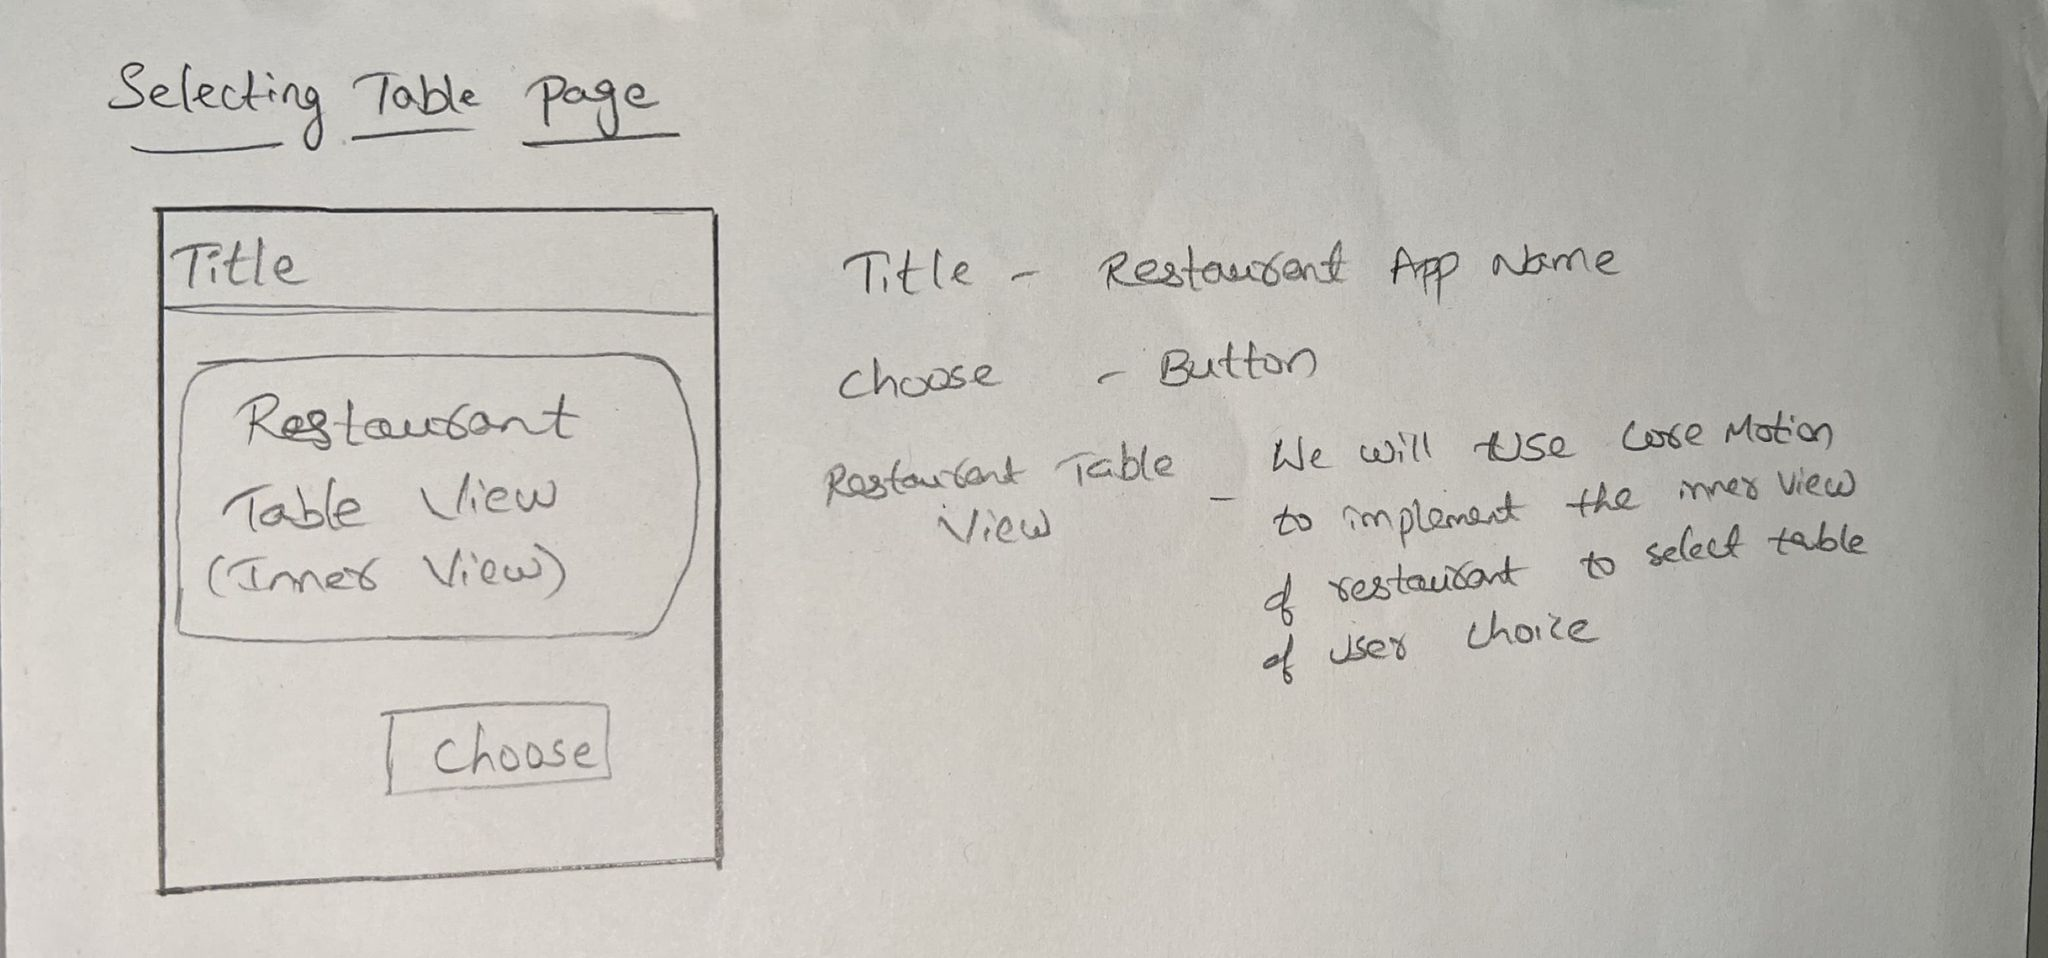 Selecting Table Page
Title
Restaurant
Table View
(Inner View)
Choose
Title - Restaurant App Name
Choose - Button
Restaurant Table
View
- We will use Core Motion
to implement the inner view
of restaurant to select table
of user choice